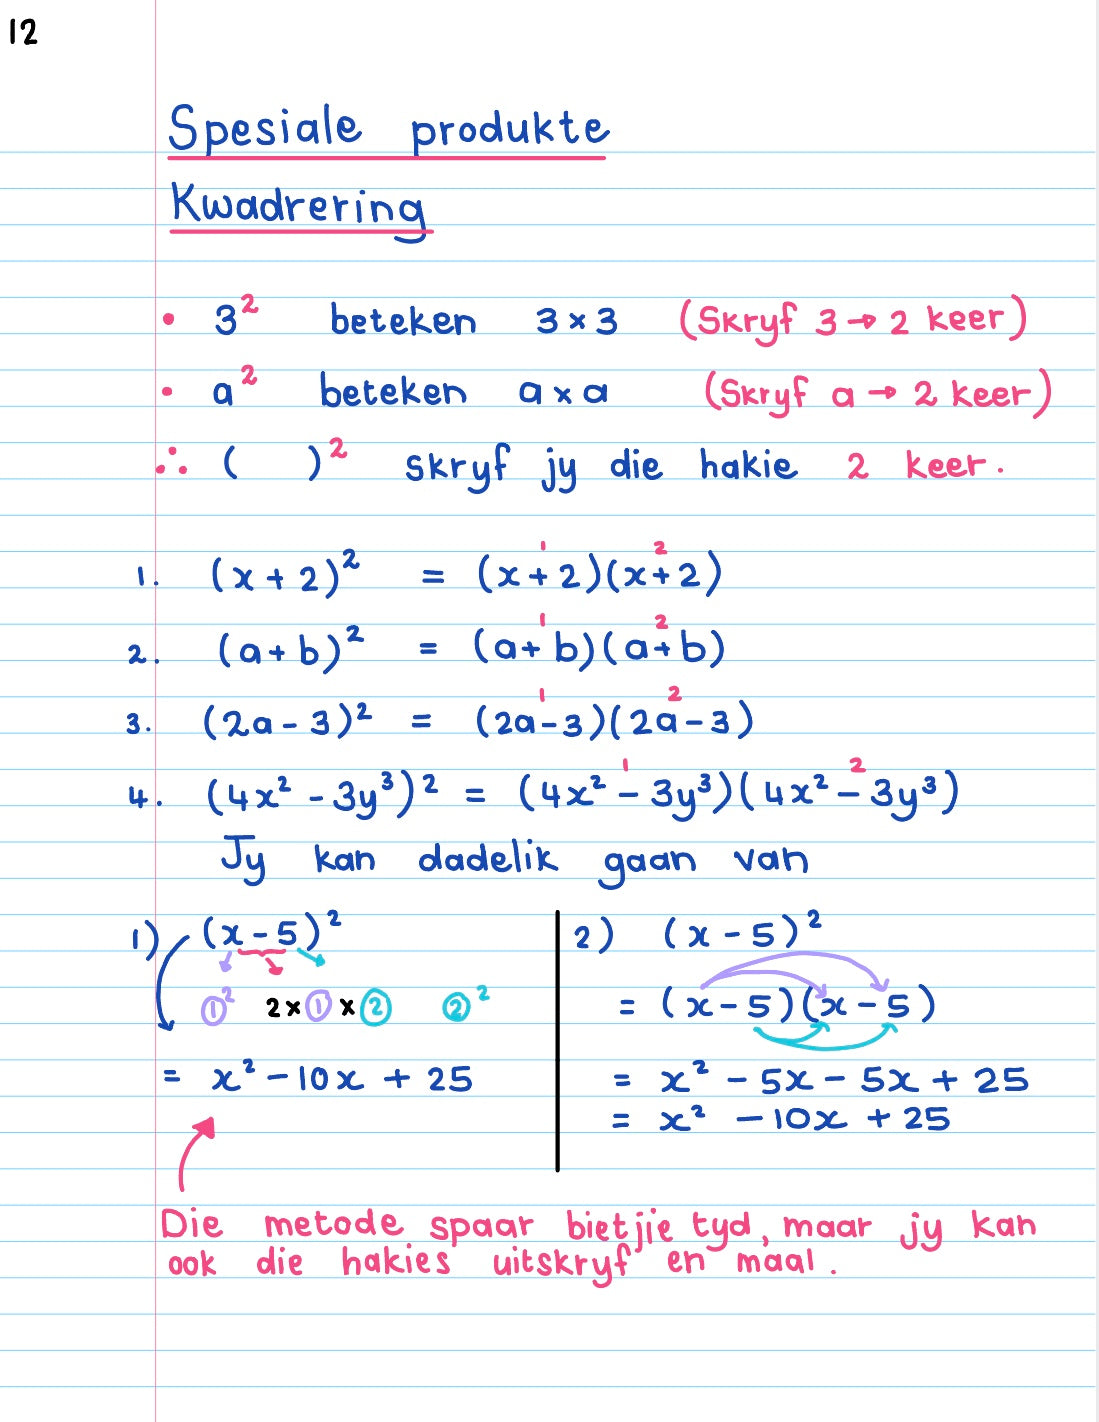 12
Spesiale produkte
Kwadrering
• 3² beteken 3 × 3 (Skryf 3 → 2 keer)
• a² beteken a × a (Skryf a → 2 keer)
∴ ( )² skryf jy die hakie 2 keer.
1. (x + 2)² = (x +¹ 2)(x +² 2)
2. (a + b)² = (a +¹ b)(a +² b)
3. (2a - 3)² = (2a -¹ 3)(2a -² 3)
4. (4x² - 3y³)² = (4x² -¹ 3y³)(4x² -² 3y³)
Jy kan dadelik gaan van
1) (x - 5)²
①² 2 × ① × ② ②²
= x² - 10x + 25
2) (x - 5)²
= (x - 5)(x - 5)
= x² - 5x - 5x + 25
= x² - 10x + 25
Die metode spaar bietjie tyd, maar jy kan
ook die hakies uitskryf en maal.